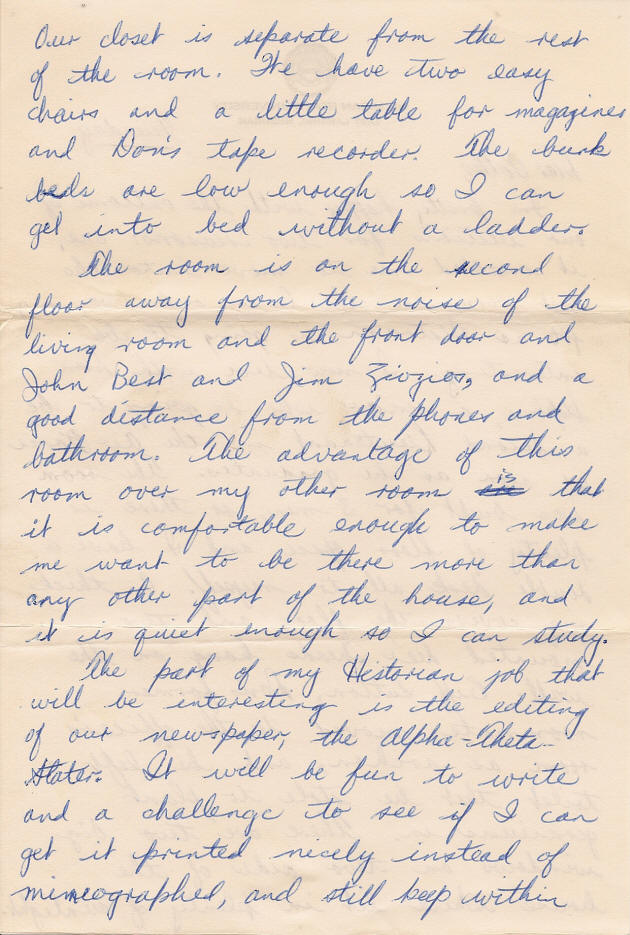 Our closet is separate from the rest
of the room. We have two easy
chairs and a little table for magazines
and Don's tape recorder. The bunk
beds are low enough so I can
get into bed without a ladder.
The room is on the second
floor away from the noise of the
living room and the front door and
John Best and Jim Zivzios, and a
good distance from the phones and
bathroom. The advantage of this
room over my other room is that
it is comfortable enough to make
me want to be there more than
any other part of the house, and
it is quiet enough so I can study.
The part of my Historian job that
will be interesting is the editing
of our newspaper, the Alpha-Theta
Stater. It will be fun to write
and a challenge to see if I can
get it printed nicely instead of
mimeographed, and still keep within